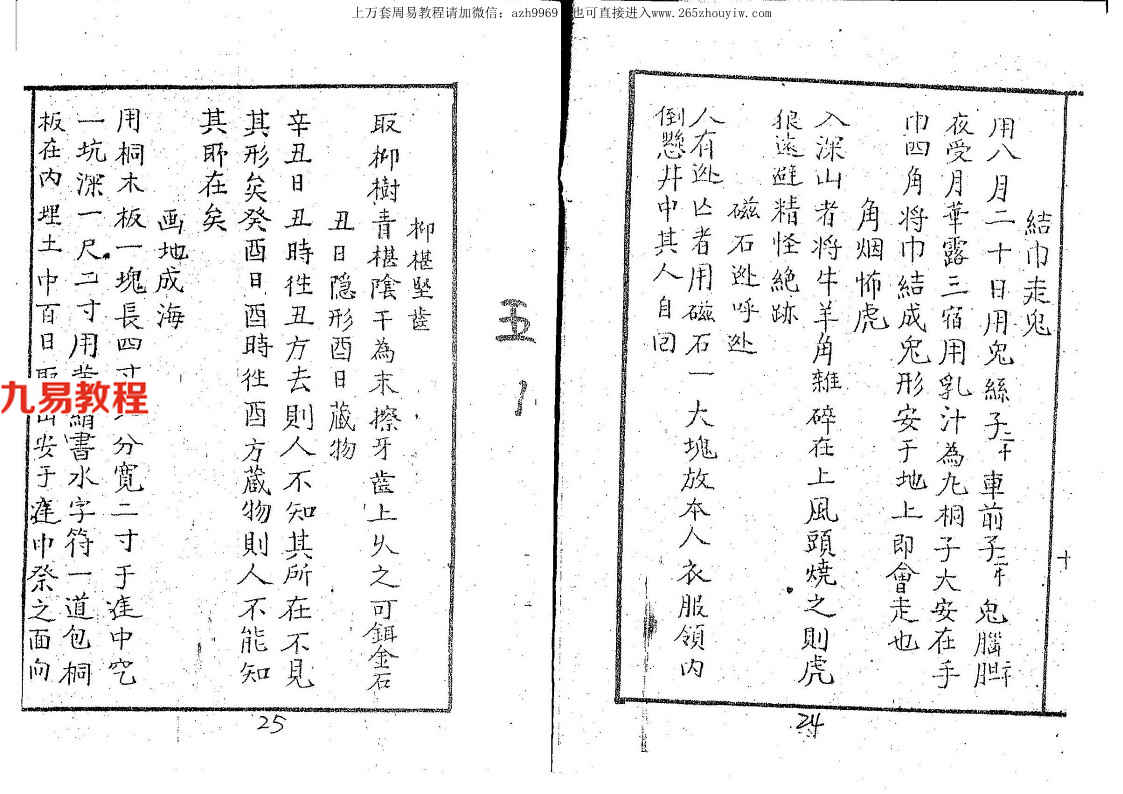 上万套周易教程请加微信：azh9969 也可直接进入www.265zhouyiw.com
結巾走兔
用八月二十日用兔絲子二十車前子二十兔腦胆二十
夜受月華露三宿用乳汁為丸桐子大安在手
巾四角将巾結成兔形安于地上即會走也
角烟怖虎
入深山者将牛羊角雜碎在上風頭燒之則虎
狼遠避精怪絶跡
磁石逃呼处
人有逃亡者用磁石一大塊放本人衣服領内
倒懸井中其人自回
十
24
五
柳椹堅齒
取柳樹青椹陰干為末擦牙齒上久之可鉺金石
丑日隐形酉日蔵物
辛丑日丑時徃丑方去則人不知其所在不見
其形矣癸酉日酉時徃酉方蔵物則人不能知
其所在矣
画地成海
用桐木板一塊長四寸分寬二寸于庭中穵
一坑深一尺二寸用絹書水字符一道包桐
板在内埋土中百日取出安于庭中祭之面向
九易教程
25